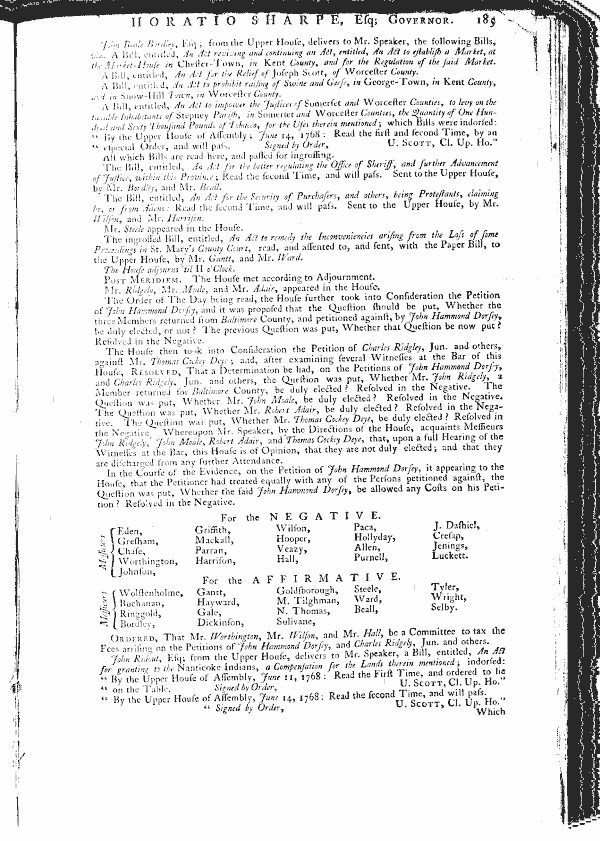 HORATIO SHARPE, Esq; GOVERNOR. 185
John Beale Bordley, Esq; from the Upper House, delivers to Mr. Speaker, the following Bills,
A Bill, entitled, An Act reviving and continuing an Act, entitled, An Act to establish a Market, at
the Market-House in Chester-Town, in Kent County, and for the Regulation of the said Market.
A Bill, entitled, An Act for the Relief of Joseph Scott, of Worcester County.
A Bill, entitled, An Act to prohibit raising of Swine and Geese, in George-Town, in Kent County,
and in Snow-Hill Town, in Worcester County.
A Bill, entitled, An Act to impower the Justices of Somerset and Worcester Counties, to levy on the
taxable Inhabitants of Stepney Parish, in Somerset and Worcester Counties, the Quantity of One Hun-
dred and Sixty Thousand Pounds of Tobacco, for the Uses therein mentioned; which Bills were indorsed:
" By the Upper House of Assembly, June 14, 1768: Read the first and second Time, by an
" especial Order, and will pass. Signed by Order, U. SCOTT, Cl. Up. Ho."
All which Bills are read here, and passed for ingrossing.
The Bill, entitled, An Act for the better regulating the Office of Sheriff, and further Advancement
of Justice, within this Province; Read the second Time, and will pass. Sent to the Upper House,
by Mr. Bordley, and Mr. Beall.
The Bill, entitled, An Act for the Security of Purchasers, and others, being Protestants, claiming
by, or from Aliens: Read the second Time, and will pass. Sent to the Upper House, by Mr.
Wilson, and Mr. Harrison.
Mr. Steele appeared in the House.
The ingrossed Bill, entitled, An Act to remedy the Inconveniencies arising from the Loss of some
Proceedings in St. Mary's County Court, read, and assented to, and sent, with the Paper Bill, to
the Upper House, by Mr. Gantt, and Mr. Ward.
The House adjourns 'til II o'Clock.
POST MERIDIEM. The House met according to Adjournment.
Mr. Ridgely, Mr. Moale, and Mr. Adair, appeared in the House.
The Order of The Day being read, the House further took into Consideration the Petition
of John Hammond Dorsey, and it was proposed that the Question should be put, Whether the
three Members returned from Baltimore County, and petitioned against, by John Hammond Dorsey,
be duly elected, or not? The previous Question was put, Whether that Question be now put?
Resolved in the Negative.
The House then took into Consideration the Petition of Charles Ridgley, Jun. and others,
against Mr. Thomas Cockey Deye; and, after examining several Witnesses at the Bar of this
House, RESOLVED, That a Determination be had, on the Petitions of John Hammond Dorsey,
and Charles Ridgely, Jun. and others, the Question was put, Whether Mr. John Ridgely, a
Member returned for Baltimore County, be duly elected? Resolved in the Negative. The
Question was put, Whether Mr. John Moale, be duly elected? Resolved in the Negative.
The Question was put, Whether Mr. Robert Adair, be duly elected? Resolved in the Nega-
tive. The Question was put, Whether Mr. Thomas Cockey Deye, be duly elected? Resolved in
the Negative. Whereupon Mr. Speaker, by the Directions of the House, acquaints Messieurs
John Ridgely, John Moale, Robert Adair, and Thomas Cockey Deye, that, upon a full Hearing of the
Witnesses at the Bar, this House is of Opinion, that they are not duly elected; and that they
are discharged from any further Attendance.
In the Course of the Evidence, on the Petition of John Hammond Dorsey, it appearing to the
House, that the Petitioner had treated equally with any of the Persons petitioned against, the
Question was put, Whether the said John Hammond Dorsey, be allowed any Costs on his Peti-
tion? Resolved in the Negative.
For the NEGATIVE.
Messieurs
Eden, Griffith, Wilson, Paca, J. Dashiel,
Gresham, Mackall, Hooper, Hollyday, Cresap,
Chase, Parran, Veazy, Allen, Jenings,
Worthington, Harrison, Hall, Purnell, Luckett.
Johnson,
For the AFFIRMATIVE.
Messieurs
Wolstenholme, Gantt, Goldsborough, Steele, Tyler,
Buchanan, Hayward, M. Tilghman, Ward, Wright,
Ringgold, Gale, N. Thomas, Beall, Selby.
Bordley, Dickinson, Sulivane,
ORDERED, That Mr. Worthington, Mr. Wilson, and Mr. Hall, be a Committee to tax the
Fees arising on the Petitions of John Hammond Dorsey, and Charles Ridgely, Jun. and others.
John Ridout, Esq; from the Upper House, delivers to Mr. Speaker, a Bill, entitled, An Act
for granting to the Nanticoke Indians, a Compensation for the Lands therein mentioned; indorsed:
" By the Upper House of Assembly, June 11, 1768: Read the First Time, and ordered to lie
" on the Table. Signed by Order, U. SCOTT, Cl. Up. Ho."
" By the Upper House of Assembly, June 14, 1768: Read the second Time, and will pass.
" Signed by Order, U. SCOTT, Cl. Up. Ho."
Which